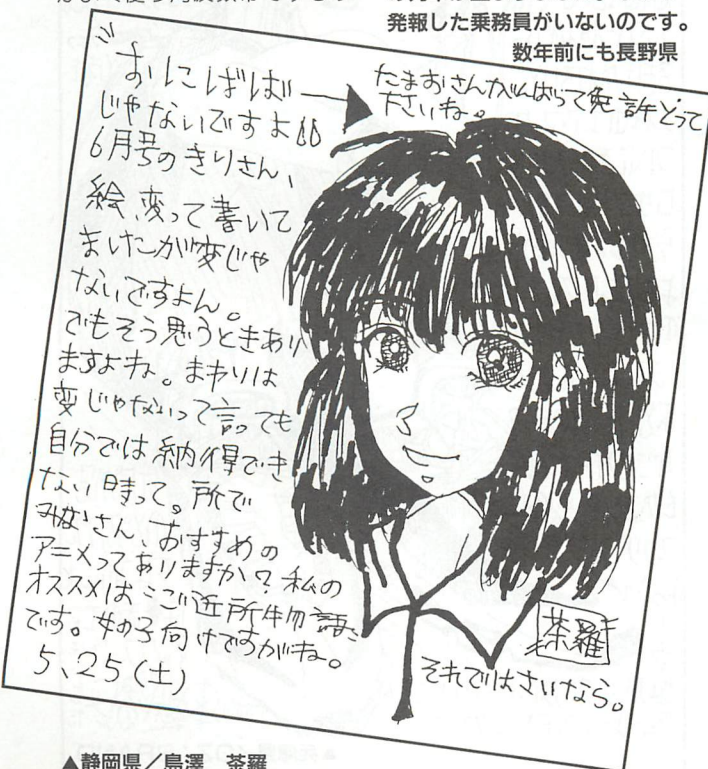 発報した乗務員がいないのです。
数年前にも長野県
おにばばば
じゃないですよ
6月号のきりさん、
絵、変って書いて
ましたが変じゃ
ないですよん。
でもそう思うときあり
ますよね。まわりは
変じゃないって言っても
自分では納得でき
ない時って。所で
みなさん、おすすめの
アニメってありますか？私の
オススメはご近所物語
です。女の子向けですがね。
5、25(土)
たまおさんがんばって免許とって
下さいね。
茶羅
それではさいなら。
▲静岡県／島澤 茶羅